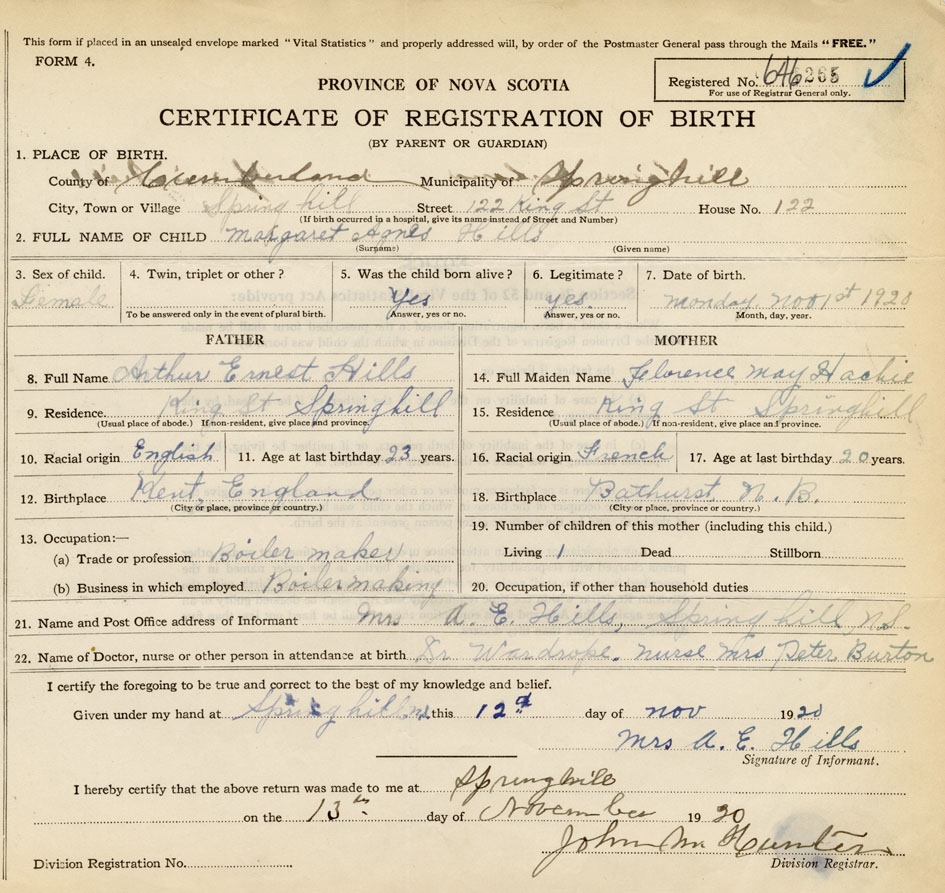 This form if placed in an unsealed envelope marked "Vital Statistics" and properly addressed will, by order of the Postmaster General pass through the Mails "FREE."
FORM 4.
PROVINCE OF NOVA SCOTIA
Registered No. 646265
For use of Registrar General only.
CERTIFICATE OF REGISTRATION OF BIRTH
(BY PARENT OR GUARDIAN)
1. PLACE OF BIRTH.
County of Cumberland Municipality of Springhill
City, Town or Village Spring hill Street 122 King St House No. 122
(If birth occurred in a hospital, give its name instead of Street and Number)
2. FULL NAME OF CHILD Margaret Agnes Hills
(Surname) (Given name)
3. Sex of child. 4. Twin, triplet or other? 5. Was the child born alive? 6. Legitimate? 7. Date of birth.
Female Yes yes. Monday Nov 1st 1920
To be answered only in the event of plural birth. Answer, yes or no. Answer, yes or no. Month, day, year.
FATHER MOTHER
8. Full Name Arthur Ernest Hills 14. Full Maiden Name Florence May Hachie
9. Residence. King St Springhill 15. Residence King St Springhill
(Usual place of abode.) If non-resident, give place and province. (Usual place of abode.) If non-resident, give place and province.
10. Racial origin English 11. Age at last birthday 23 years. 16. Racial origin French 17. Age at last birthday 20 years.
12. Birthplace Kent, England 18. Birthplace Bathurst N. B.
(City or place, province or country.) (City or place, province or country.)
13. Occupation:— 19. Number of children of this mother (including this child.)
(a) Trade or profession Boiler maker Living 1 Dead Stillborn
(b) Business in which employed Boilermaking 20. Occupation, if other than household duties
21. Name and Post Office address of Informant Mrs A. E. Hills, Spring hill, N.S.
22. Name of Doctor, nurse or other person in attendance at birth Dr Wardrope. nurse Mrs Peter Burton
I certify the foregoing to be true and correct to the best of my knowledge and belief.
Given under my hand at Springhill N.S. this 12th day of Nov 1920
Mrs A. E. Hills
Signature of Informant.
I hereby certify that the above return was made to me at Springhill
on the 13th day of November 1920
John M Hunter
Division Registration No. Division Registrar.